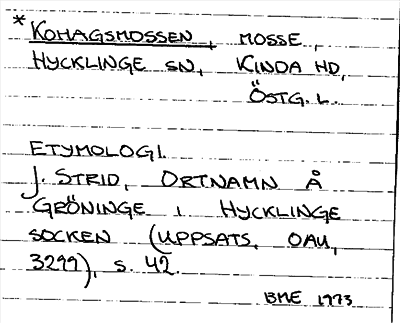 * KOHAGSMOSSEN, MOSSE,
HYCKLINGE SN, KINDA HD,
ÖSTG. L.
ETYMOLOGI.
J. STRID, ORTNAMN Å
GRÖNINGE I HYCKLINGE
SOCKEN (UPPSATS, OAU,
3299), s. 42.
BME 1973